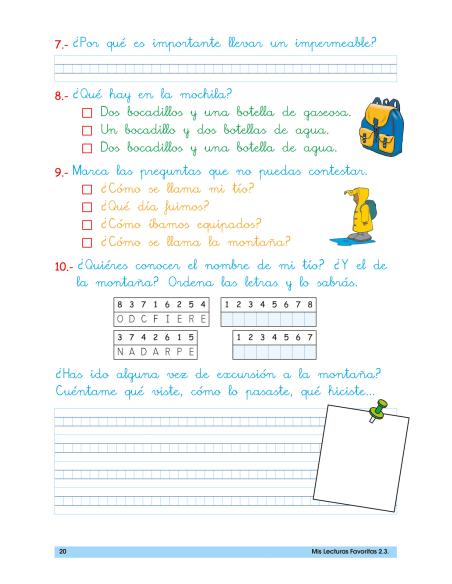 7.- ¿Por qué es importante llevar un impermeable?
8.- ¿Qué hay en la mochila?
Dos bocadillos y una botella de gaseosa.
Un bocadillo y dos botellas de agua.
Dos bocadillos y una botella de agua.
9.- Marca las preguntas que no puedas contestar.
¿Cómo se llama mi tío?
¿Qué día fuimos?
¿Cómo íbamos equipados?
¿Cómo se llama la montaña?
10.- ¿Quiéres conocer el nombre de mi tío? ¿Y el de
la montaña? Ordena las letras y lo sabrás.
8 3 7 1 6 2 5 4 1 2 3 4 5 6 7 8
O D C F I E R E
3 7 4 2 6 1 5 1 2 3 4 5 6 7
N A D A R P E
¿Has ido alguna vez de excursión a la montaña?
Cuéntame qué viste, cómo lo pasaste, qué hiciste...
20 Mis Lecturas Favoritas 2.3.